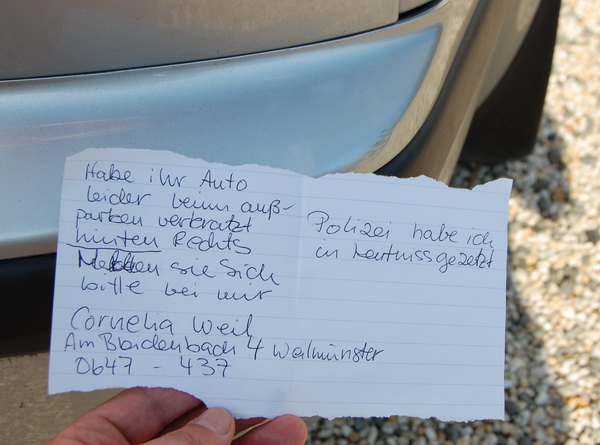 Habe ihr Auto
leider beim auß-
parken verkratzt
hinten Rechts
Melden sie Sich
bitte bei mir
Cornelia Weil
Am Bleidenbach 4 Weilmünster
0647 - 437
Polizei habe ich
in kentniss gezetzt